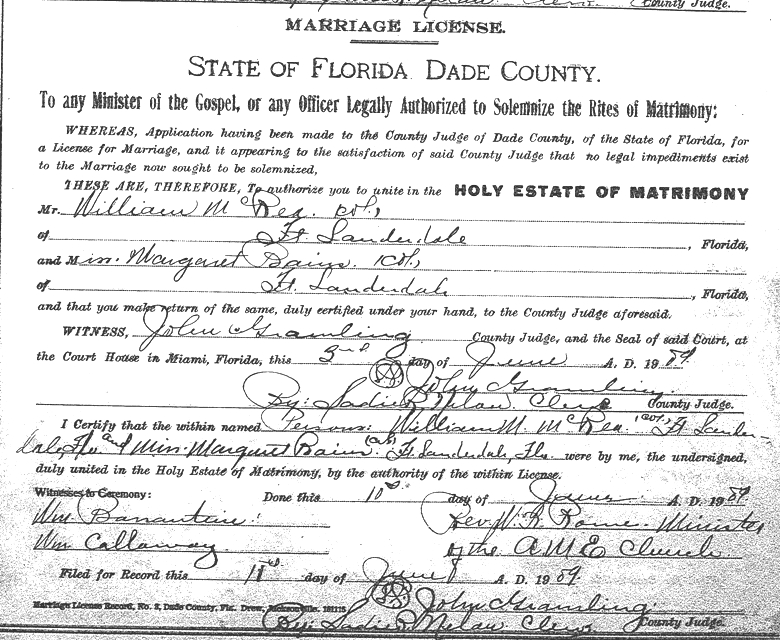 County Judge.
MARRIAGE LICENSE.
STATE OF FLORIDA DADE COUNTY.
To any Minister of the Gospel, or any Officer Legally Authorized to Solemnize the Rites of Matrimony:
WHEREAS, Application having been made to the County Judge of Dade County, of the State of Florida, for
a License for Marriage, and it appearing to the satisfaction of said County Judge that no legal impediments exist
to the Marriage now sought to be solemnized,
THESE ARE, THEREFORE, To authorize you to unite in the HOLY ESTATE OF MATRIMONY
Mr. William McRea. col,
of Ft Lauderdale, Florida,
and Miss. Margaret Bain. col,
of Ft Lauderdale, Florida,
and that you make return of the same, duly certified under your hand, to the County Judge aforesaid.
WITNESS, John Gramling County Judge, and the Seal of said Court, at
the Court House in Miami, Florida, this 3rd day of June A. D. 1909
John Gramling
By: Sadie R. Clerk County Judge.
I Certify that the within named Persons: William M. McRea (col,) Ft Lauder-
dale, Fla and Miss. Margaret Bain (col) Ft Lauderdale, Fla. were by me, the undersigned,
duly united in the Holy Estate of Matrimony, by the authority of the within License.
Witnesses to Ceremony: Done this 10th day of June A. D. 1909
Wm. Bannantine. Rev. W. K. Minister
Wm Callaway of the A M E Church
Filed for Record this 11th day of June A. D. 1909.
John Gramling
Marriage License Record, No. 3, Dade County, Fla. Drew, Jacksonville. 181115 By: Sadie R. Clerk County Judge.